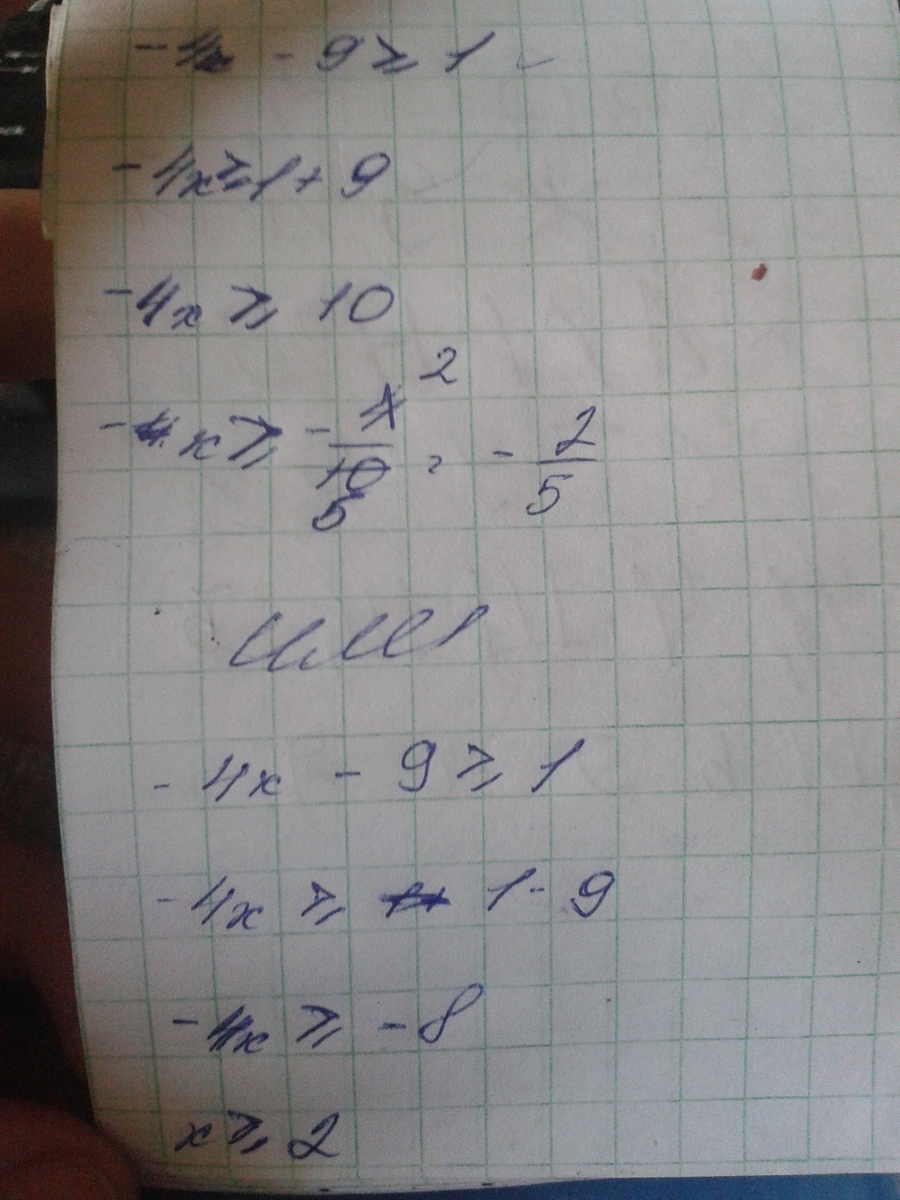 -4x - 9 ⩾ 1
-4x ⩾ 1 + 9
-4x ⩾ 10
-4x ⩾ - 4/10 2 5 = - 2/5
или
-4x - 9 ⩾ 1
-4x ⩾ 1 - 9
-4x ⩾ -8
x ⩾ 2